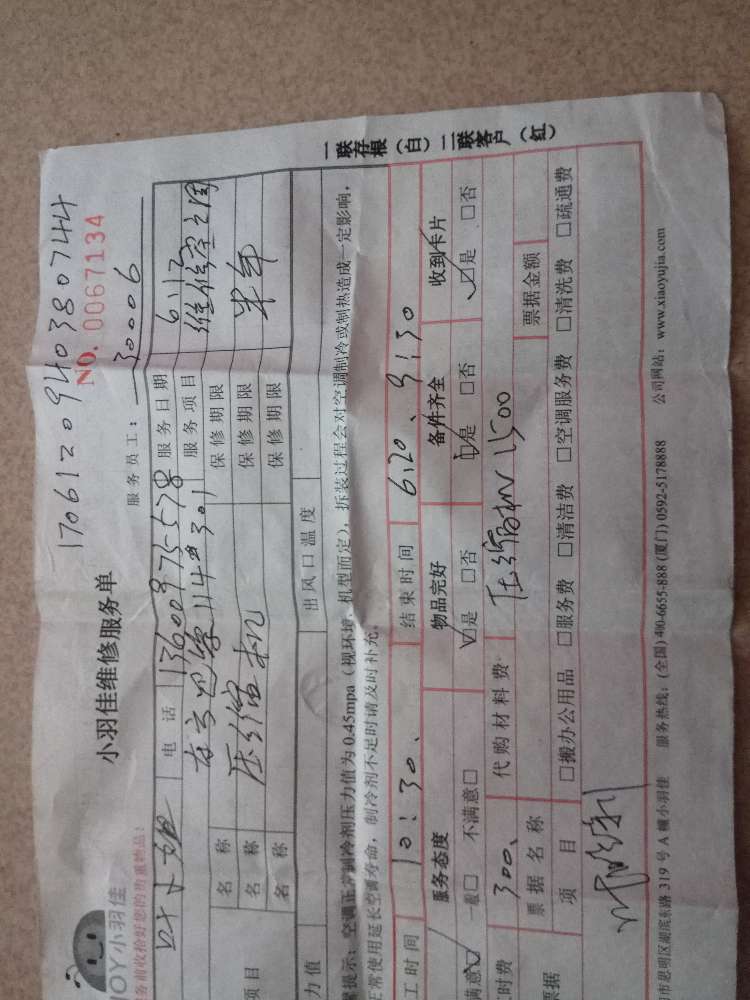 1706120940380744
小羽佳维修服务单
NO. 0067134
JOY小羽佳
务前收拾好您的贵重物品!
服务员工: 30006
叶小姐 电话 13600975578 服务日期 6.17
114#301 服务项目 维修空调
项目 名称 压缩机 保修期限 半年
名称 保修期限
名称 保修期限
力值 出风口温度
提示:空调正常制冷剂压力值为0.45mpa(视环境、机型而定),拆装过程会对空调制冷或制热造成一定影响,
正常使用延长空调寿命,制冷剂不足时请及时补充。
工时间 10:30、 结束时间 6.20、9:30
服务态度 物品完好 备件齐全 收到卡片
满意☑ 一般□ 不满意□ ☑是 □否 ☑是 □否 ☑是 □否
时费 300、 代购材料费 压缩机1500
票据 票据名称 票据金额
项目 □搬办公用品 □服务费 □清洁费 □空调服务费 □清洗费 □疏通费
市思明区湖滨东路319号A幢小羽佳 服务热线:(全国)400-6655-888 (厦门)0592-5178888 公司网站:www.xiaoyujia.com
一联存根(白)二联客户(红)